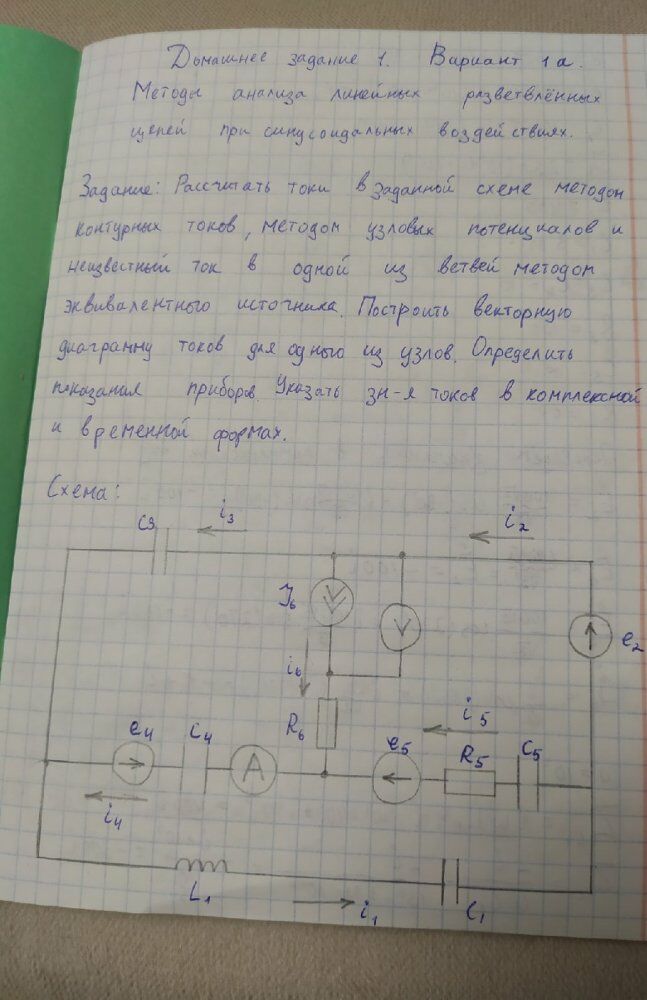 Домашнее задание 1. Вариант 1а.
Методы анализа линейных разветвлённых
цепей при синусоидальных воздействиях.
Задание: Рассчитать токи в заданной схеме методом
контурных токов, методом узловых потенциалов и
неизвестный ток в одной из ветвей методом
эквивалентного источника. Построить векторную
диаграмму токов для одного из узлов. Определить
показания приборов. Указать зн-я токов в комплексной
и временной формах.
Схема:
C3 i3 i2
J6 e2
i6
R6 i5
e4 C4 e5 R5 C5
A
i4
L1 i1 C1